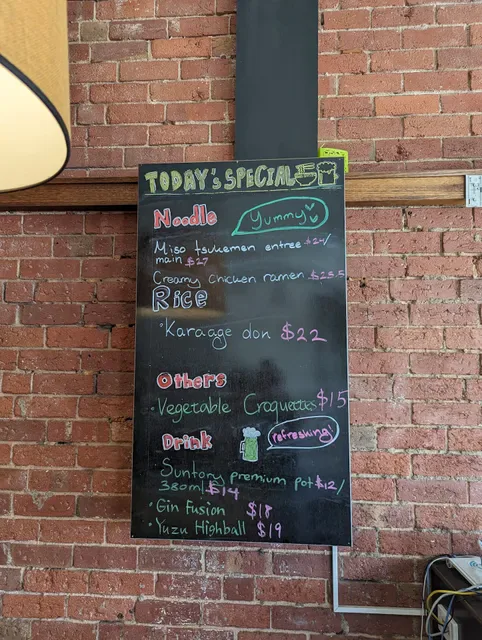 TODAY's SPECIAL
Noodle
Yummy
Miso tsukemen entree $24/
main $27
Creamy chicken ramen $25.5
Rice
·Karaage don $22
Others
·Vegetable Croquettes $15
Drink
refreshing!
Suntory premium pot $12/
380ml $14
·Gin Fusion $18
·Yuzu Highball $19